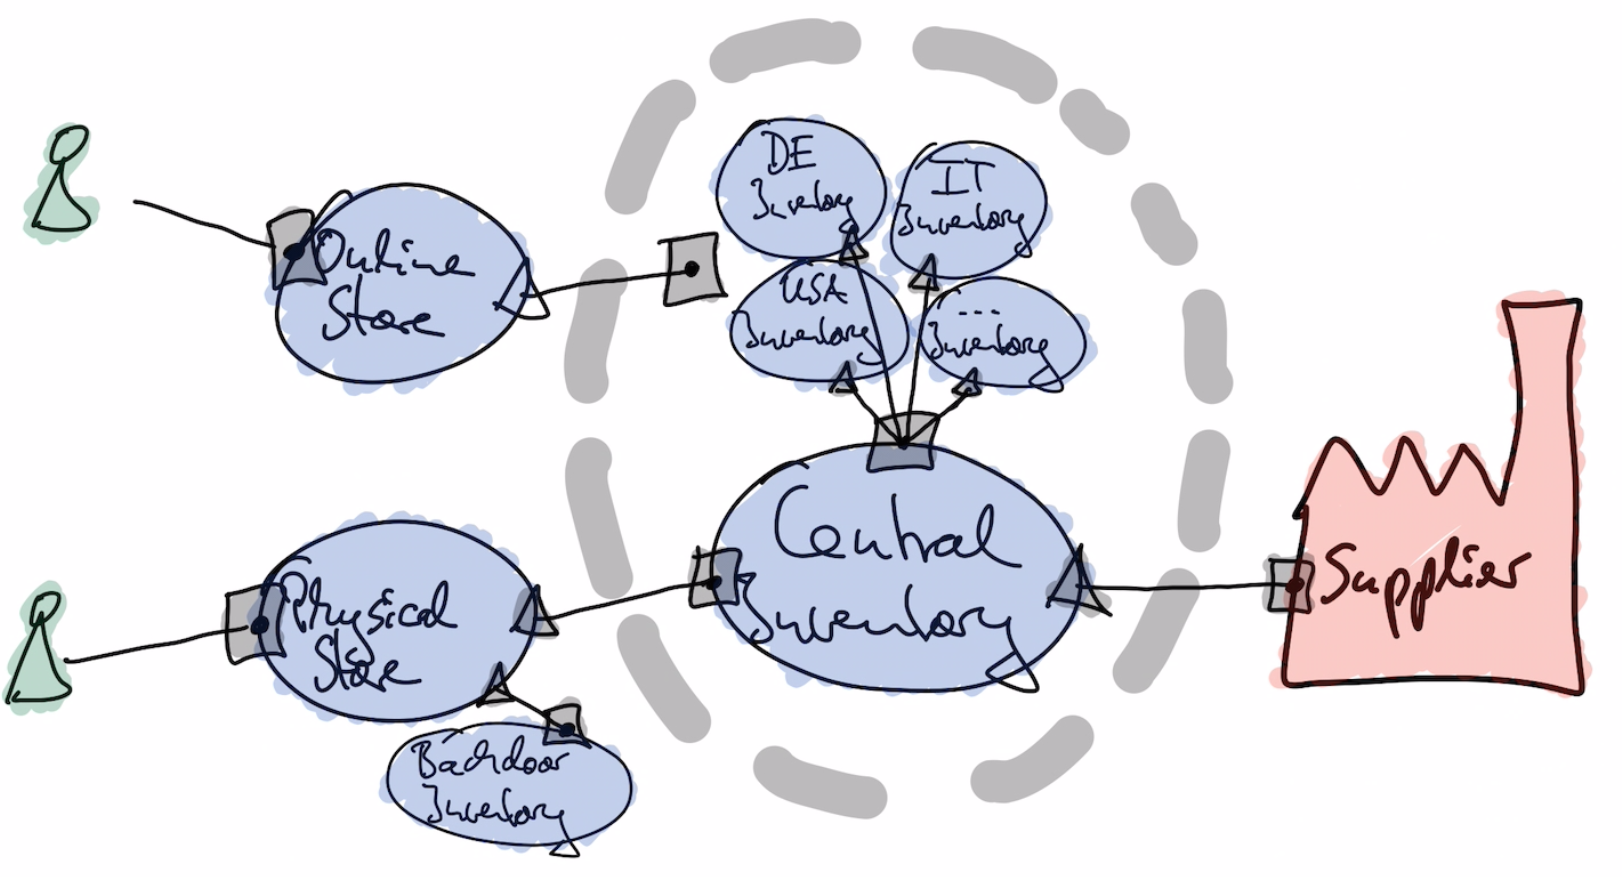 DE
Inventory
IT
Inventory
Online
Store
USA
Inventory
...
Inventory
Central
Inventory
Supplier
Physical
Store
Backdoor
Inventory